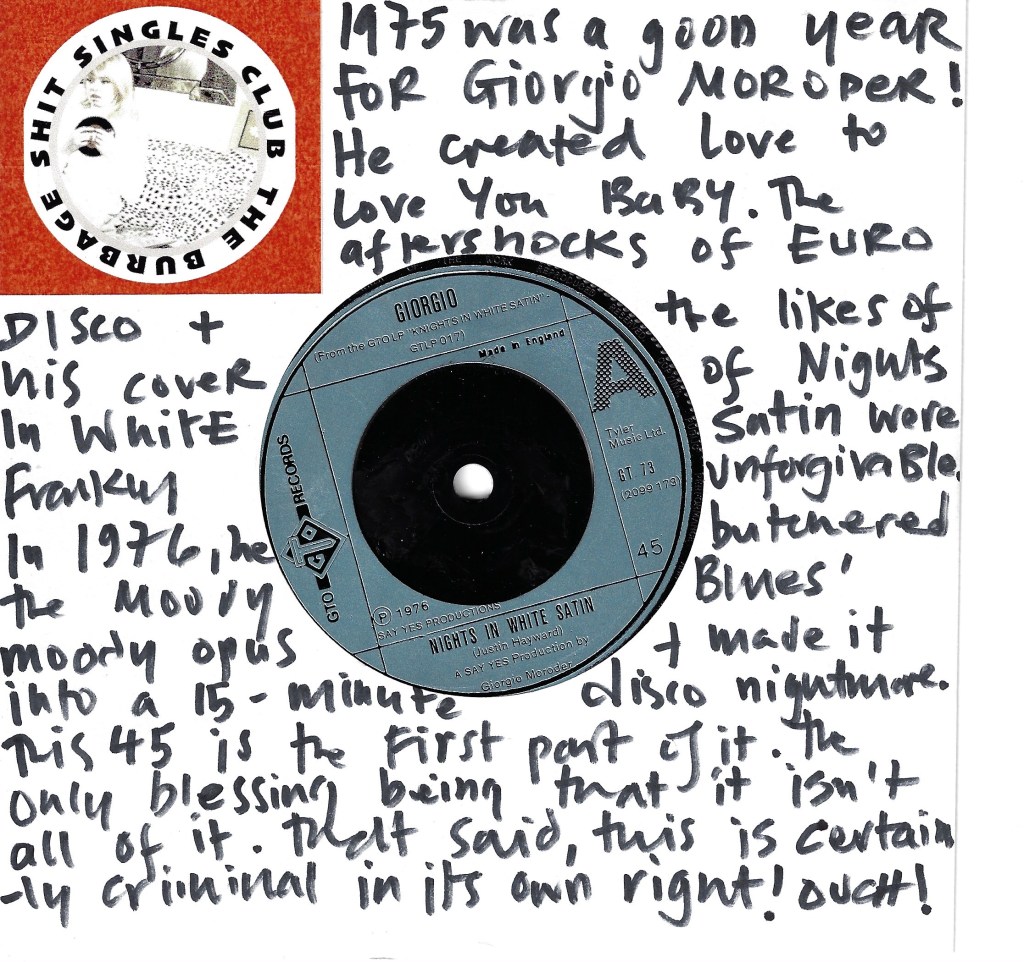 SHIT SINGLES CLUB THE BURBAGE
1975 was a good year
FOR Giorgio MORODER!
He created Love to
Love You BaBY. The
aftershocks of EURO
DISCO + the likes of
his cover of Nights
In WhitE Satin were
Frankly unforgivaBle.
In 1976, he butchered
the Moody Blues'
moody opus + made it
into a 15-minute disco nightmare.
This 45 is the First part of it. The
only blessing being that it isn't
all of it. That said, this is certain
-ly criminal in its own right! OUCH!
GIORGIO
(From the GTO LP "KNIGHTS IN WHITE SATIN" -
GTLP 017)
Made in England
A
Tyler
Music Ltd.
GT 73
(2099 173)
45
GTO RECORDS
GTO
Ⓟ 1976
SAY YES PRODUCTIONS
NIGHTS IN WHITE SATIN
(Justin Hayward)
A SAY YES Production by
Giorgio Moroder